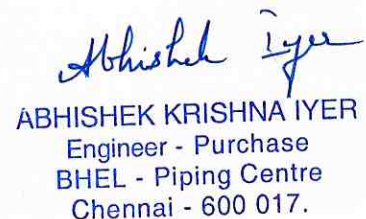 Abhishek Iyer
ABHISHEK KRISHNA IYER
Engineer - Purchase
BHEL - Piping Centre
Chennai - 600 017.